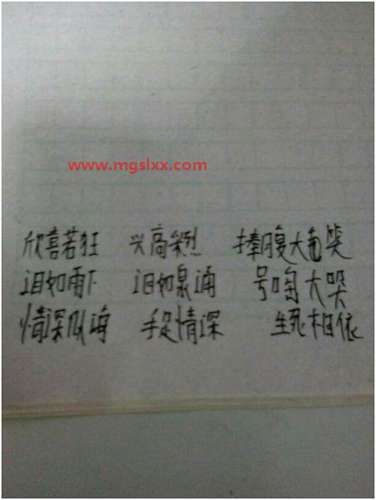 www.mgslxx.com
欣喜若狂 兴高彩烈 捧腹大笑
泪如雨下 泪如泉涌 号啕大哭
情深似海 手足情深 生死相依